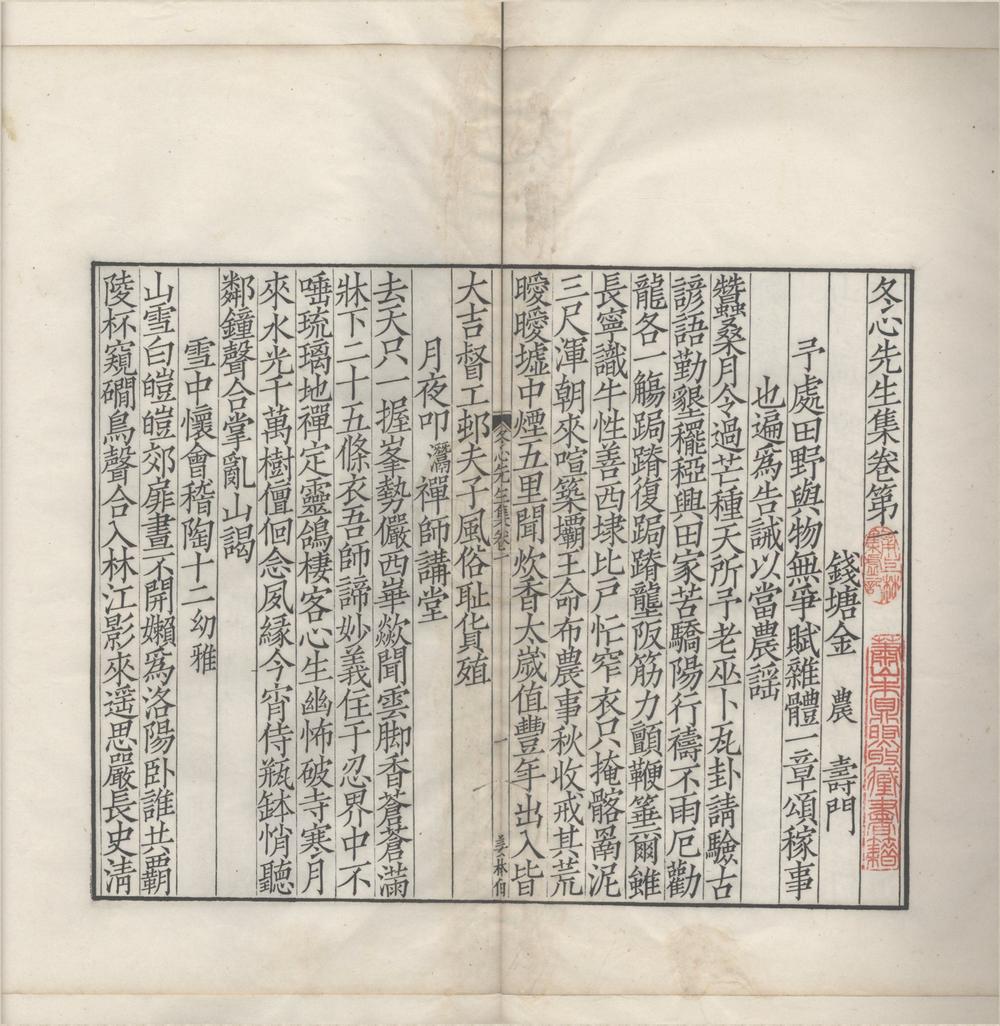 冬心先生集卷第一
錢塘金　農　壽門
予處田野與物無爭賦雜體一章頌稼事
也遍為告誡以當農謡
蠶桑月令過芒種天所予老巫卜瓦卦請驗古
諺語勤墾䆉稏興田家苦驕陽行禱不雨厄勸
龍各一觴跼蹐復跼蹐壟阪筋力顫鞭箠爾雖
長寧識牛性善西埭比戶忙窄衣只掩髂剮泥
三尺渾朝來喧築壩王命布農事秋收戒其荒
曖曖墟中煙五里聞炊香太歲值豐年出入皆
大吉督工邨夫子風俗耻貨殖
月夜叩　禪師講堂
去天只一握峯勢儼西崋歘聞雲脚香蒼蒼滿
牀下二十五條衣吾師諦妙義任于忍界中不
唾琉璃地禪定靈鴿棲客心生幽怖破寺寒月
來水光千萬樹儃佪念夙緣今宵侍瓶鉢悄聽
粼鐘聲合掌亂山謁
雪中懷會稽陶十二幼雅
山雪白皚皚郊扉晝不開嬾為洛陽臥誰共霸
陵杯窺磵鳥聲合入林江影來遥思嚴長史清
冬心先生集卷一
一